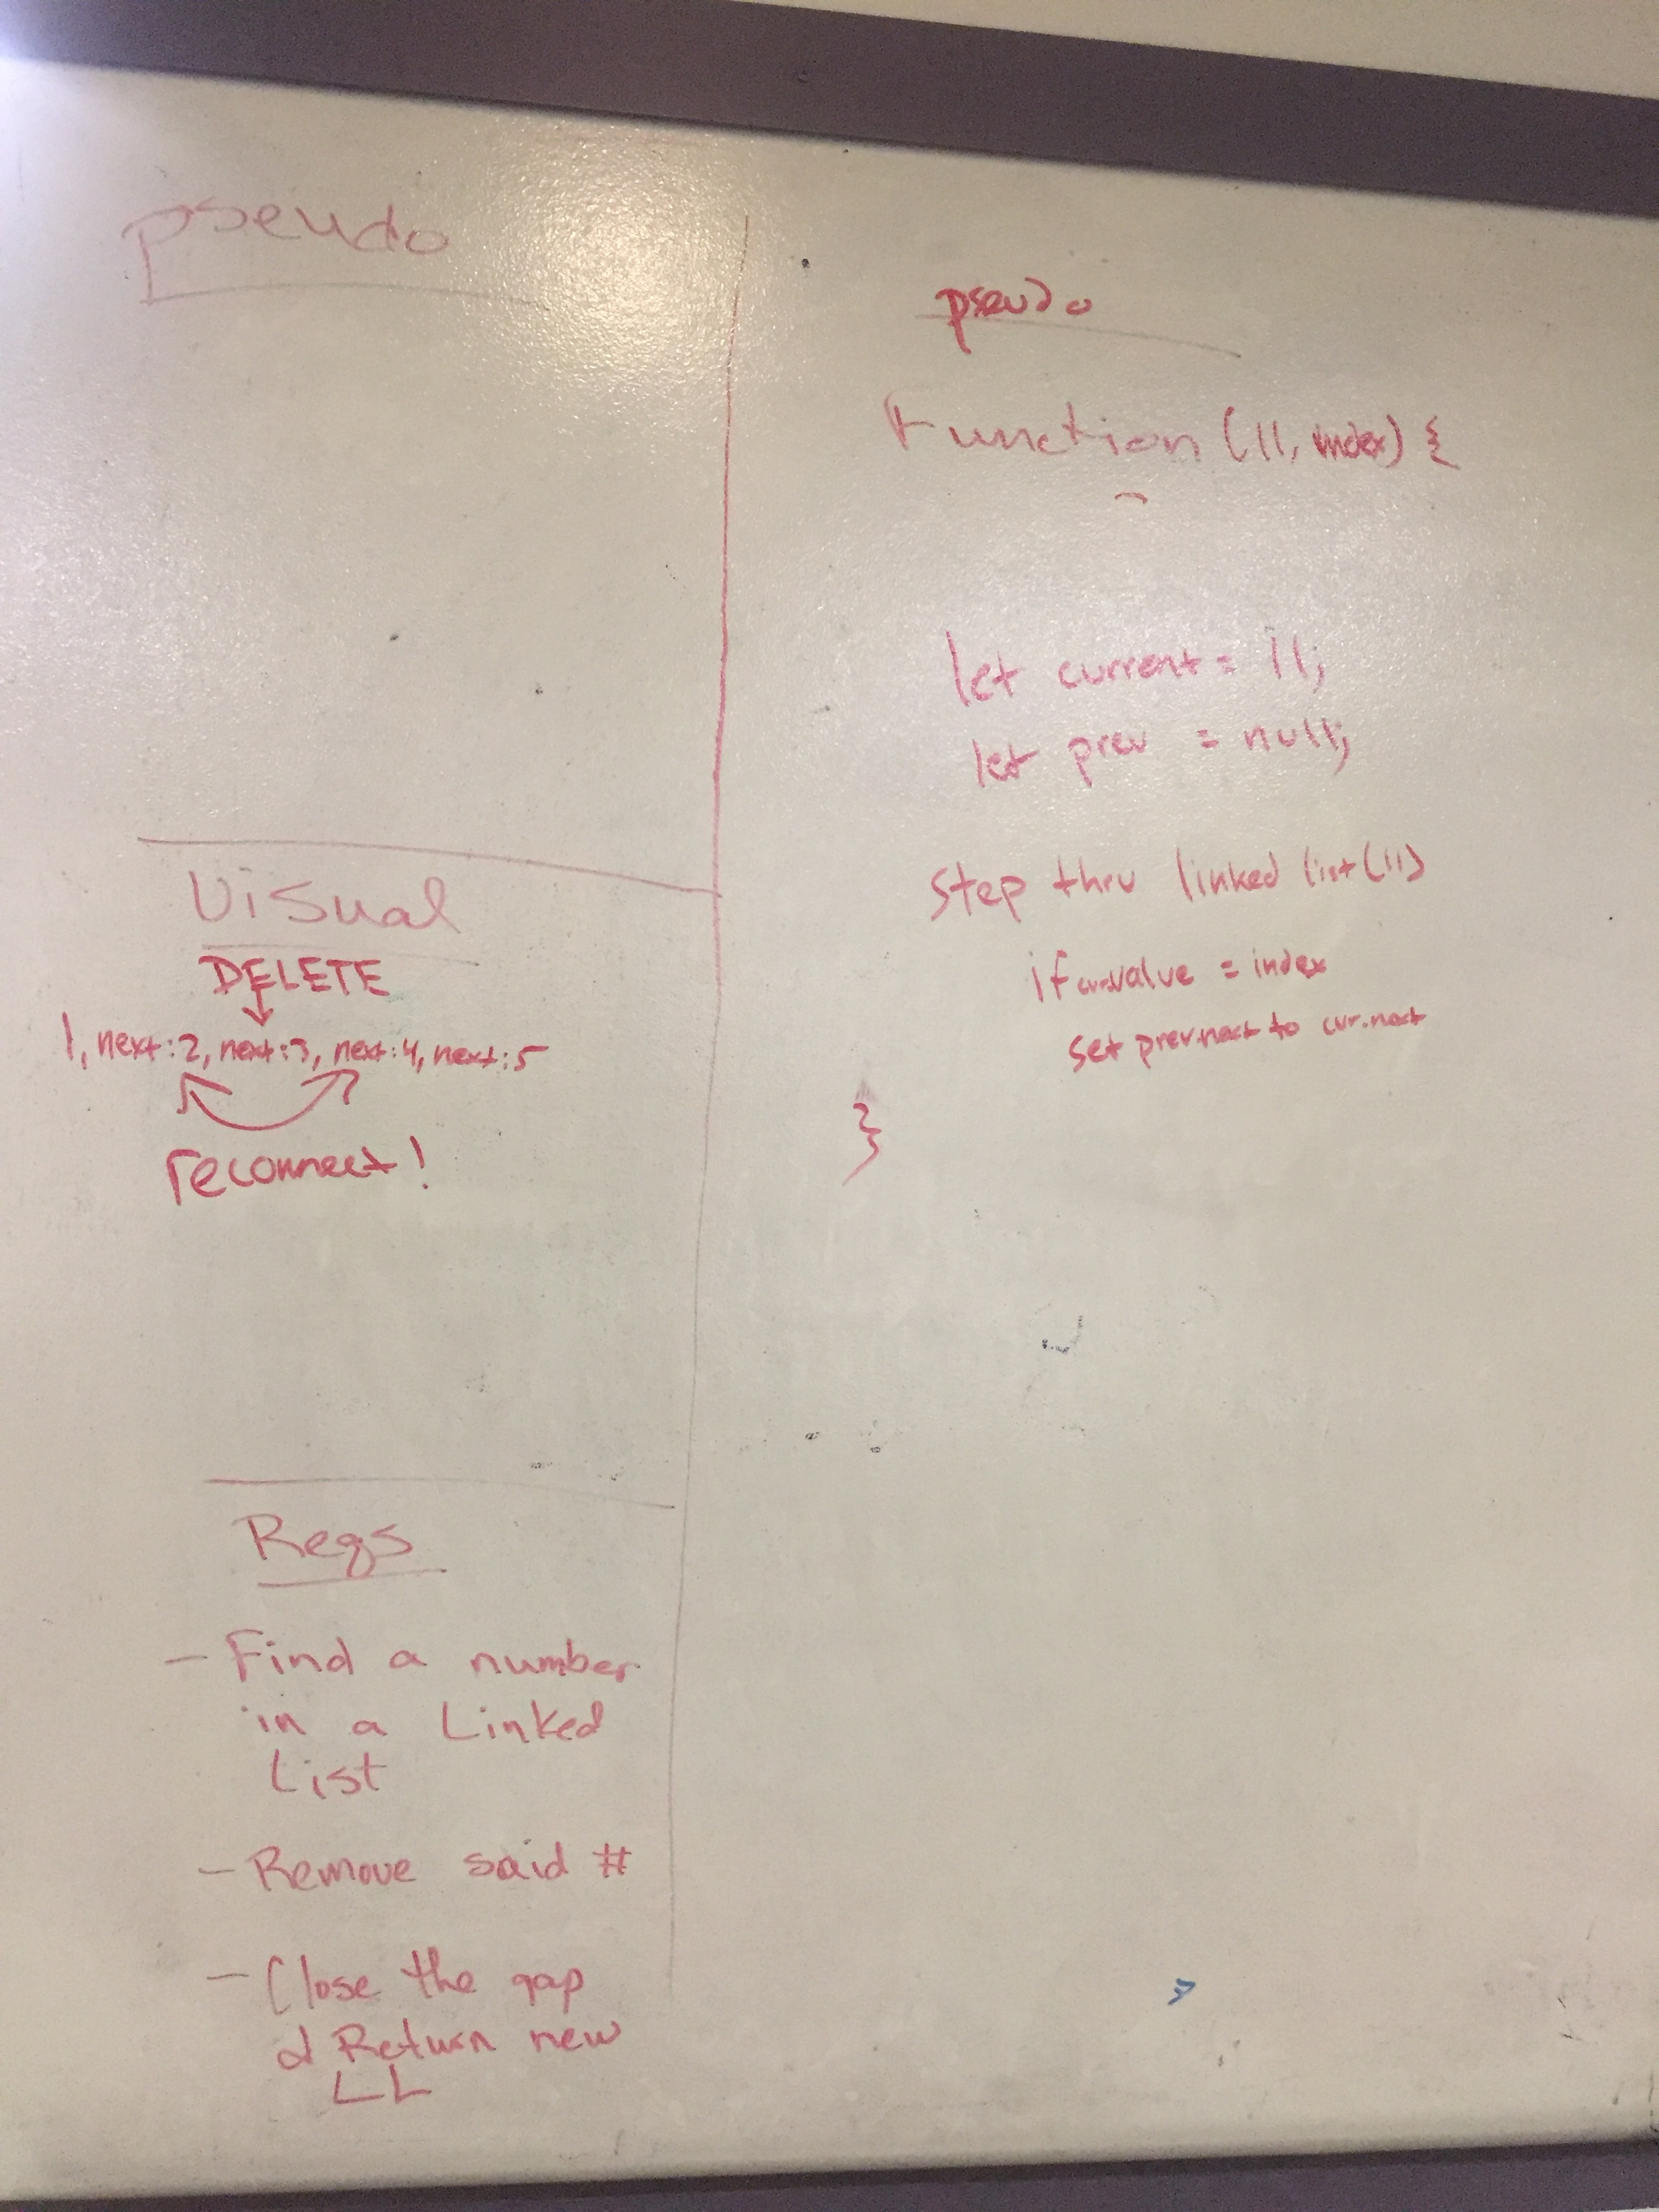 pseudo
Visual
DELETE
1, next:2, next:3, next:4, next:5
reconnect!
Reqs
- Find a number
in a Linked
List
- Remove said #
- Close the gap
& Return new
LL
pseudo
Function (ll, index) {
let current = ll;
let prev = null;
Step thru linked list (ll)
if cur.value = index
set prev.next to cur.next
}